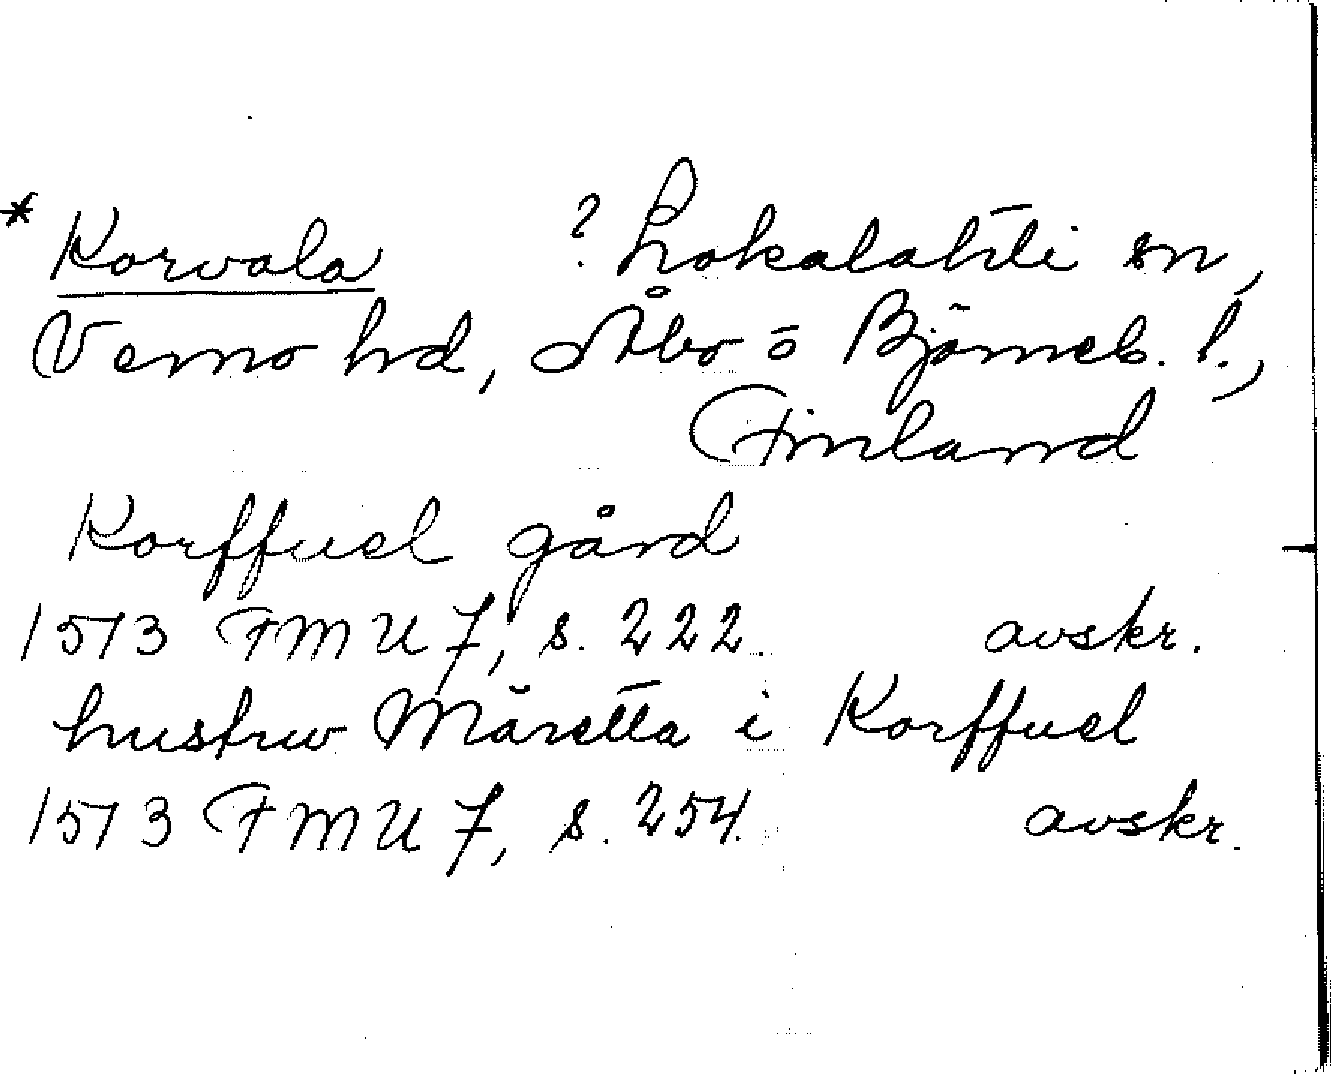 * Korvala ? Lokalahti sn,
Vemo hd, Åbo o Björneb. l.,
Finland
Korffuel gård
1513 FMU 7, s. 222. avskr.
hustrw Märetta i Korffuel
1513 FMU 7, s. 254. avskr.